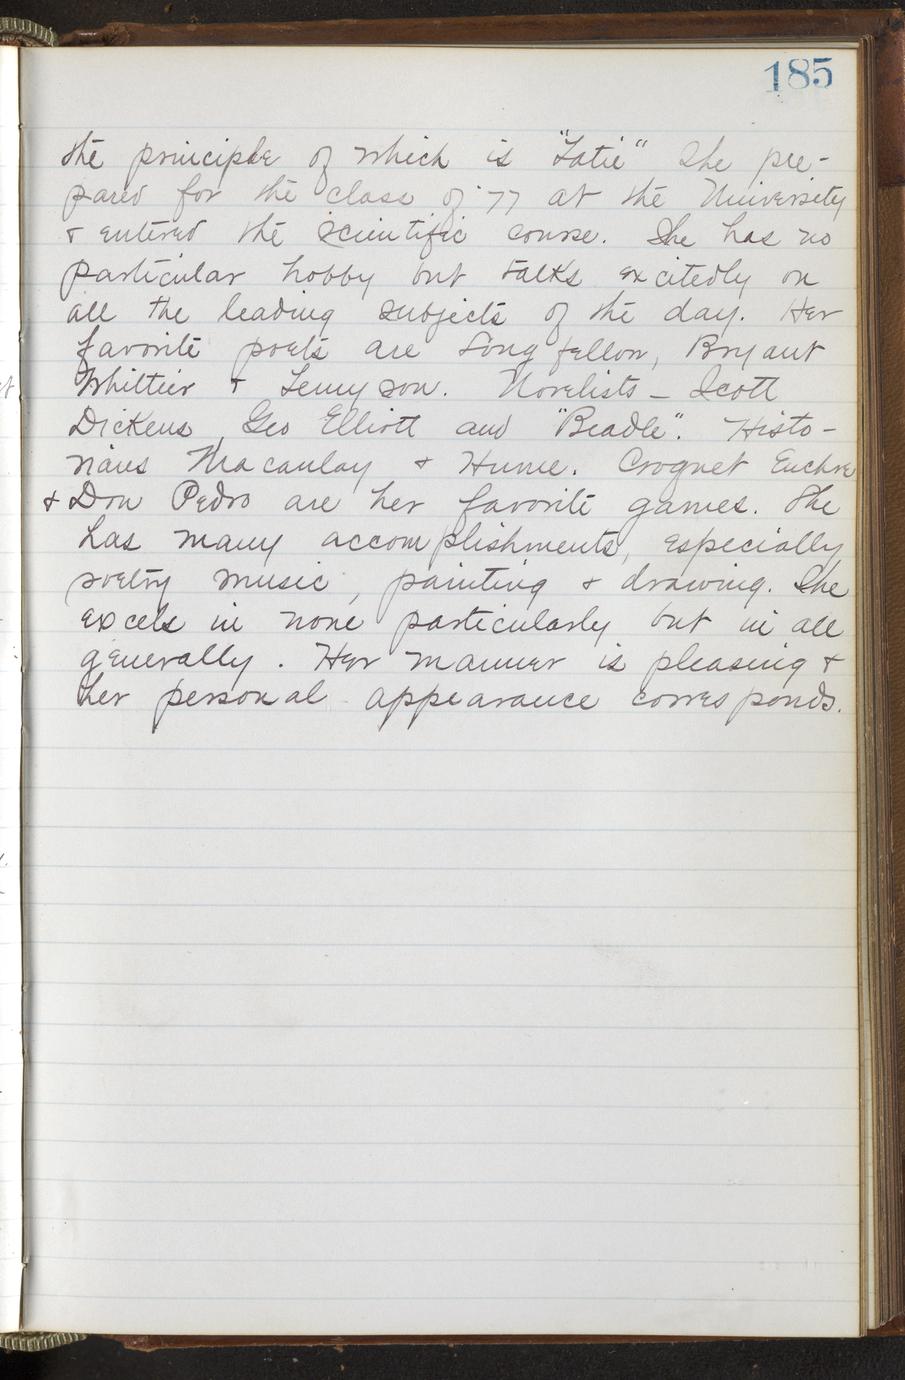 185
the principle of which is "Tatie" She pre-
pared for the class of '77 at the University
& entered the scientific course. She has no
particular hobby but talks excitedly on
all the leading subjects of the day. Her
favorite poets are Longfellow, Bryant
Whittier & Tennyson. Novelists – Scott
Dickens Geo Elliott and "Beadle". Histo-
rians Macaulay & Hume. Croquet Euchre
& Don Pedro are her favorite games. She
has many accomplishments, especially
poetry music, painting & drawing. She
excels in none particularly but in all
generally. Her manner is pleasing &
her personal appearance corresponds.